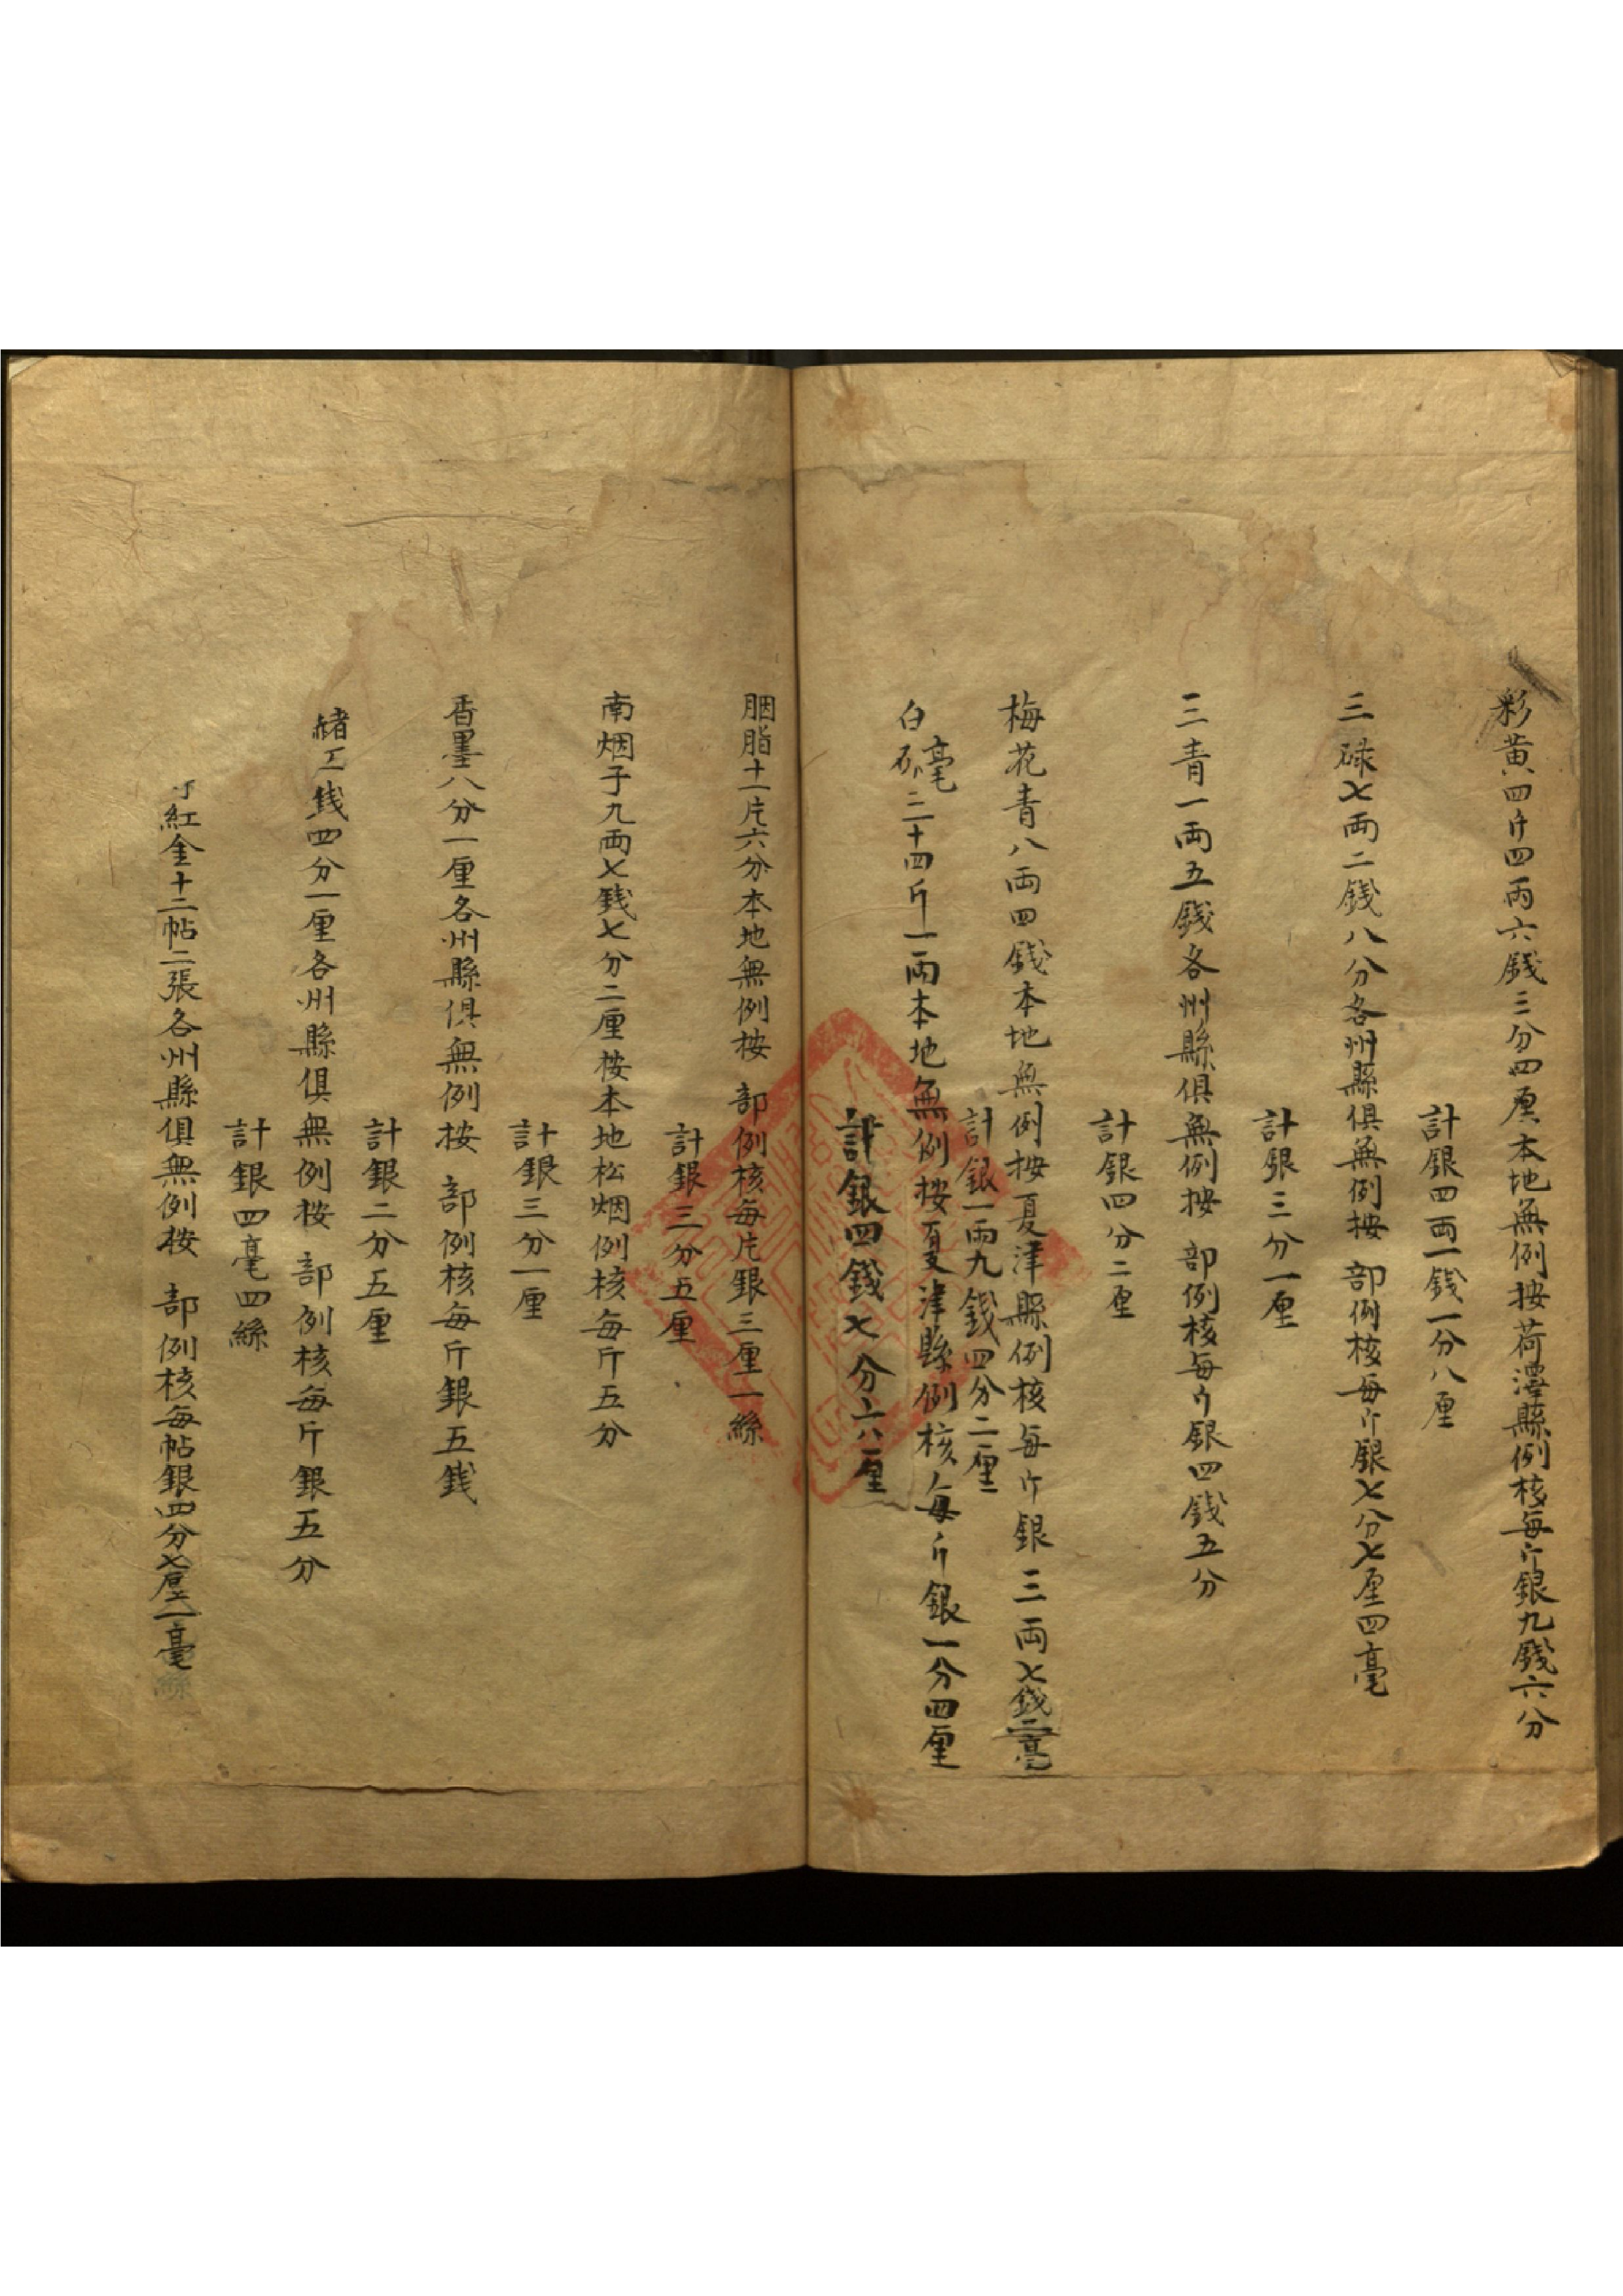 彩黄四斤四兩六錢三分四厘本地無例按荷澤縣例核每斤銀九錢六分
計銀四両一錢一分八厘
三碌七両二錢八分各州縣俱無例按 部例核每斤銀七分七厘四毫
計銀三分一厘
三青一両五錢各州縣俱無例按 部例核每斤銀四錢五分
計銀四分二厘
梅花青八両四錢本地無例按夏津縣例核每斤銀三両七錢二毫
計銀一両九錢四分二厘
白 三十四斤一両本地無例按夏津縣例核每斤銀一分四厘
毫
計銀四錢七分六厘
胭脂十一片六分本地無例按 部例核每片銀三厘一絲
計銀三分五厘
南烟子九両七錢七分二厘按本地松烟例核每斤五分
計銀三分一厘
香墨八分一厘各州縣俱無例按 部例核每斤銀五錢
計銀二分五厘
錢四分一厘各州縣俱無例按 部例核每斤銀五分
計銀四毫四絲
紅金十二帖二張各州縣俱無例按 部例核每帖銀四分七厘一毫